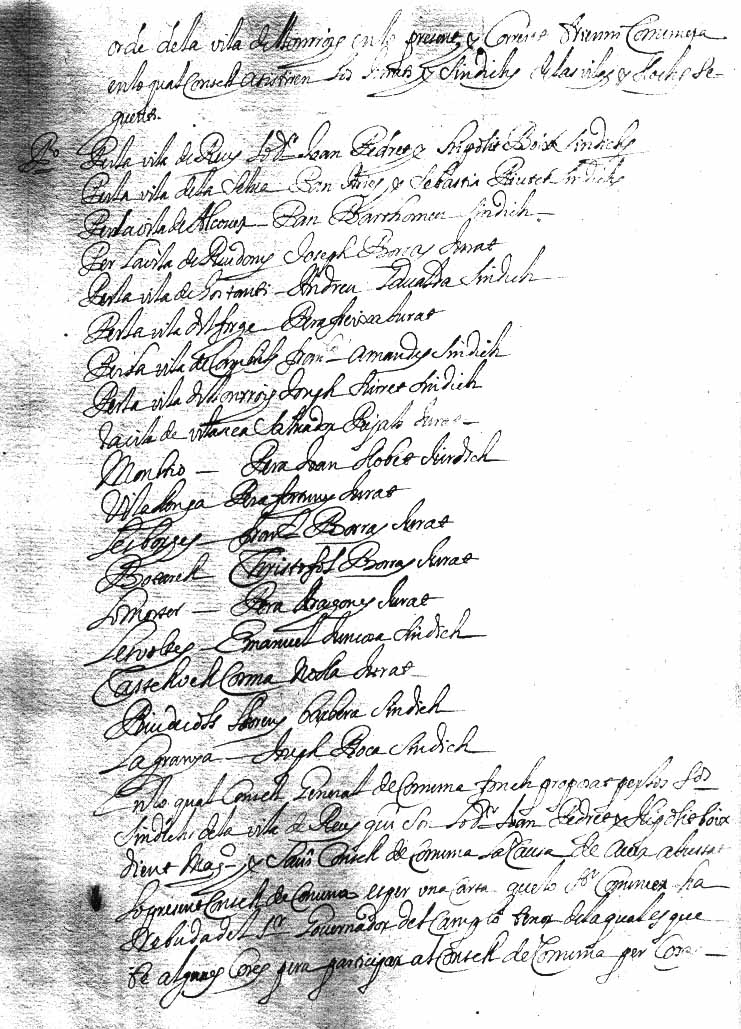 orde de la vila de Monrroig en lo present y Corrent Commu
en lo qual Consell assistiren los Jurats y Sindichs de las vilas y Lochs se-
guents.
Po Perla vila de Reus lo Dr Juan Pedret y Hipolit Boix Sindichs
Perla vila dela Selva Pau y Sebastia Sindichs
Perla vila de Alcover Pau Barthomeu Sindich
Per la vila de Riudoms Joseph Borras Jurat
Perla vila de Constanti Andreu Sindich
Perla vila del forge Pera freixa Jurat
Perla vila de Cambrils fran.co Amandes Sindich
Perla vila de Monrroig Joseph Sindich
la vila de vilaseca Salvador Pujals Jurat
Monbrio Pera Juan Llobet Sindich
Vilallonga Pera fortuny Jurat
Lesborges fran.co Borras Jurat
Botarell Christofol Borras Jurat
Lo Morter Pera Aragones Jurat
Lesvoltes Emanuel Sindich
Tastellvell Cosma Nolla Jurat
Riudecols Llorens barbera Sindich
La granxa Joseph Roca Sindich
En lo qual Consell General de Comuna fonch proposat per los Srs
Sindichs de la vila de Reus qui son lo Dr Juan Pedret y Hipolit boix
dient Mag.chs y Savi Consell de Comuna la Causa de aver ajustat
lo present Consell de Comuna es per una Carta que lo Sr Comuner ha
Rebuda del Sr Governador del Camp lo tenor de la qual es que
te algunes Coses pera participar al Consell de Comuna per